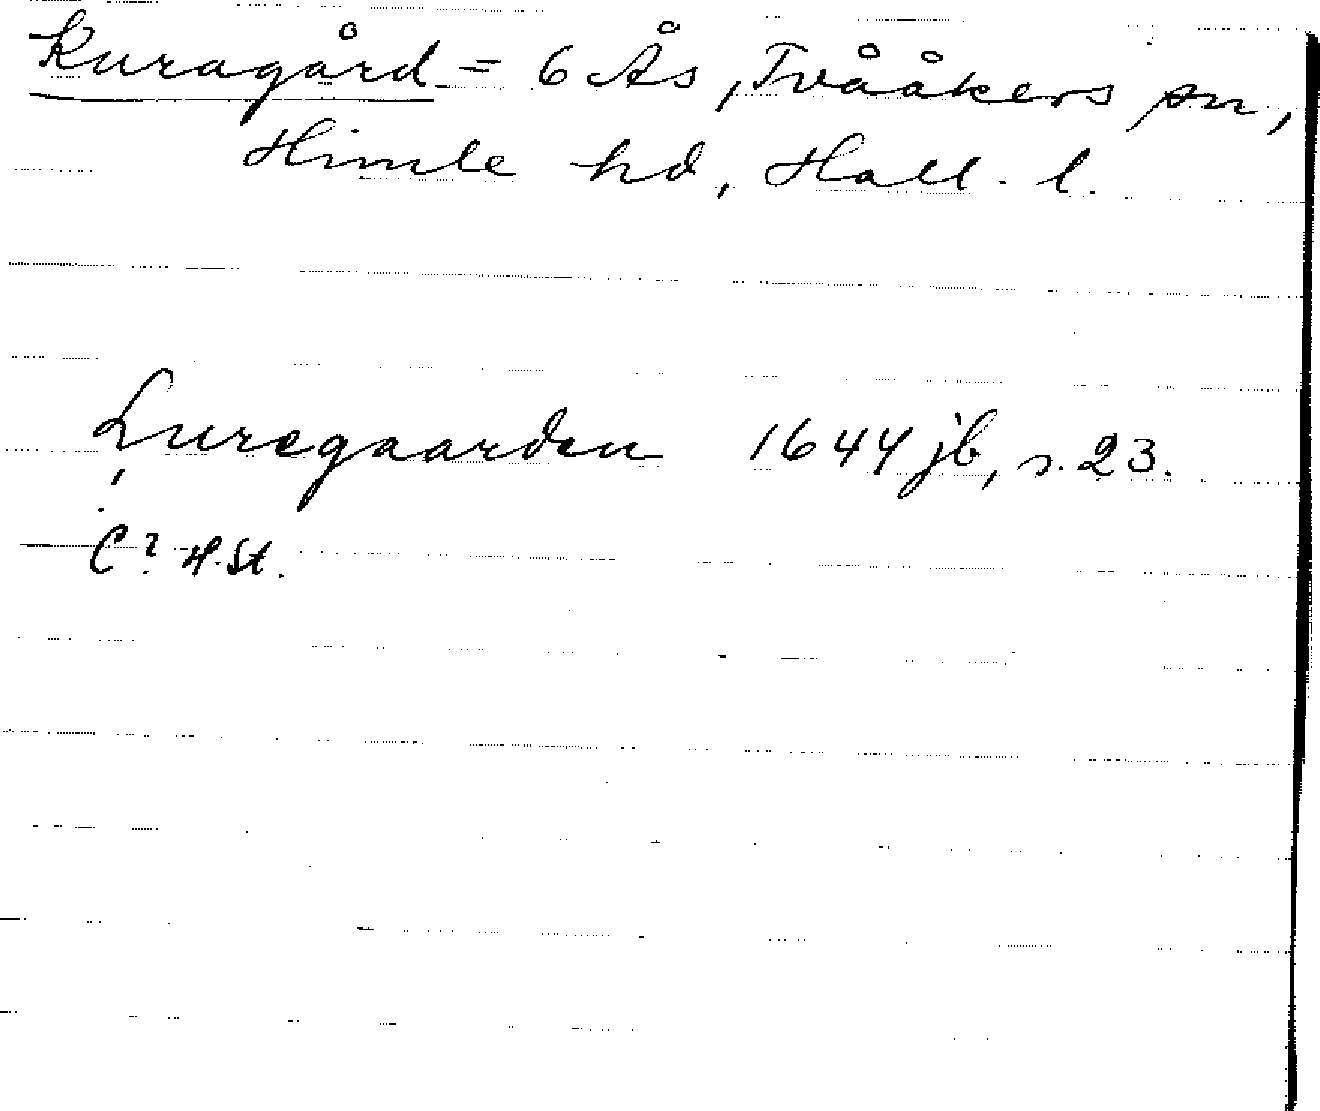 Kuragård = 6 Ås, Tvååkers sn,
Himle hd, Hall. l.
Luregaarden 1644 jb, s. 23.
C? H.St.